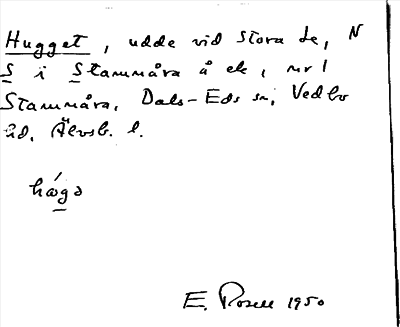 Hugget, udde vid Stora Le, N
S i Stammåra å ek, nr 1
Stammåra, Dals-Eds sn, Vedbo
hd, Älvsb. l.
hǽgə
E. Rosell 1950